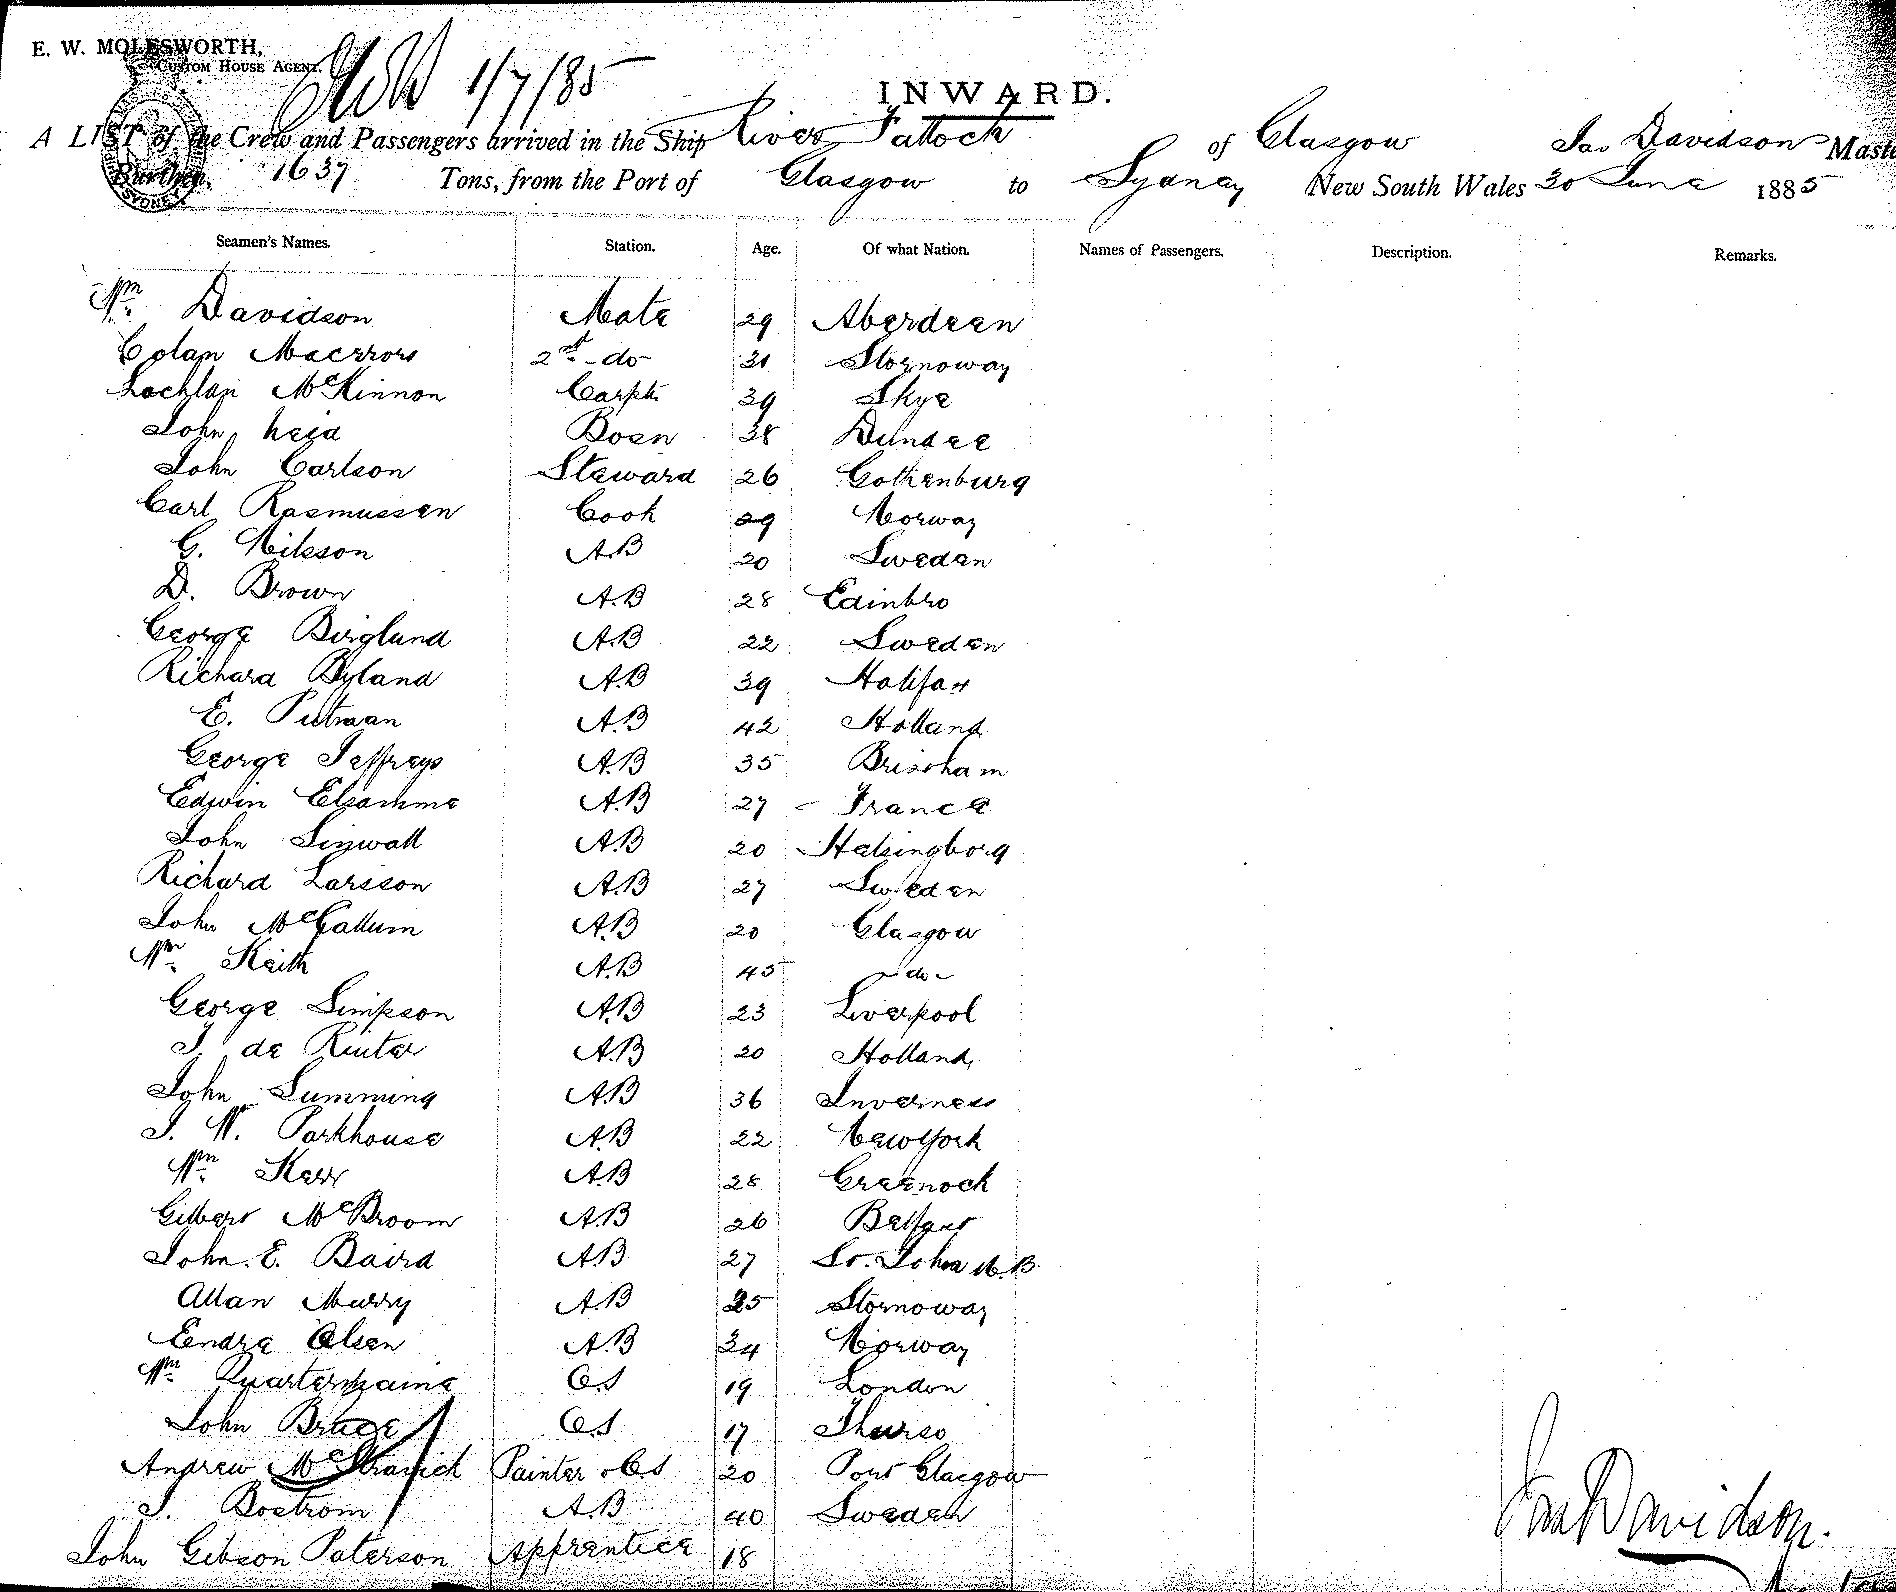 E. W. MOLESWORTH,
CUSTOM HOUSE AGENT.
1/7/85
INWARD.
A LIST of the Crew and Passengers arrived in the Ship River Fallock of Glasgow Jas Davidson Maste
Burthen, 1637 Tons, from the Port of Glasgow to Sydney New South Wales 30 June 1885
SYDNEY
Seamen's Names. Station. Age. Of what Nation. Names of Passengers. Description. Remarks.
Wm. Davidson Mate 29 Aberdeen
Colan 2nd do 31 Stornoway
Lachlan McKinnon Carptr 39 Skye
John Bosn 38 Dundee
John Carlson Steward 26 Gothenburg
Carl Rasmussen Cook 29 Norway
G. Nilsson A.B 20 Sweden
D. Brown A.B 28 Edinbro
George Birglund A.B 22 Sweden
Richard Byland A.B 39 Halifax
E. Putman A.B 42 Holland
George Jeffreys A.B 35 Brixham
Edwin A.B 27 - France
John A.B 20 Helsingborg
Richard Larsson A.B 27 Sweden
John McCallum A.B 20 Glasgow
Wm. Keith A.B 45 - do -
George Simpson A.B 23 Liverpool
J. de Ruiter A.B 20 Holland
John A.B 36 Inverness
J. W. Parkhouse A.B 22 New York
Wm. Kerr A.B 28 Greenock
Gilbert McBroom A.B 26 Belfast
John. E. Baird A.B 27 St. John N.B.
Allan Murry A.B 25 Stornoway
Endre Olsen A.B 24 Norway
Wm. Quartermaine O.S 19 London
John Bruce O.S 17 Thurso
Andrew Painter & O.S 20 Port Glasgow
J. Bostrom A.B 40 Sweden
John Gibson Paterson Apprentice 18
Jas Davidson.